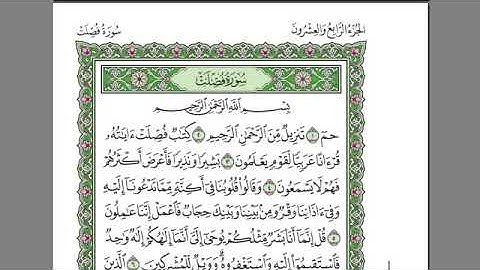 سُورَةُ فُصِّلَت
الجُزءُ الرَّابِعُ وَالعِشرُونَ
سُورَةُ فُصِّلَت
بِسْمِ اللَّهِ الرَّحْمَٰنِ الرَّحِيمِ
حمٓ ١ تَنزِيلٌ مِّنَ الرَّحْمَٰنِ الرَّحِيمِ ٢ كِتَٰبٌ فُصِّلَتْ ءَايَٰتُهُۥ
قُرْءَانًا عَرَبِيًّا لِّقَوْمٍ يَعْلَمُونَ ٣ بَشِيرًا وَنَذِيرًا فَأَعْرَضَ أَكْثَرُهُمْ
فَهُمْ لَا يَسْمَعُونَ ٤ وَقَالُوا۟ قُلُوبُنَا فِىٓ أَكِنَّةٍ مِّمَّا تَدْعُونَآ إِلَيْهِ
وَفِىٓ ءَاذَانِنَا وَقْرٌ وَمِنۢ بَيْنِنَا وَبَيْنِكَ حِجَابٌ فَٱعْمَلْ إِنَّنَا عَٰمِلُونَ
٥ قُلْ إِنَّمَآ أَنَا۠ بَشَرٌ مِّثْلُكُمْ يُوحَىٰٓ إِلَىَّ أَنَّمَآ إِلَٰهُكُمْ إِلَٰهٌ وَٰحِدٌ
فَٱسْتَقِيمُوٓا۟ إِلَيْهِ وَٱسْتَغْفِرُوهُ وَوَيْلٌ لِّلْمُشْرِكِينَ ٦ ٱلَّذِينَ